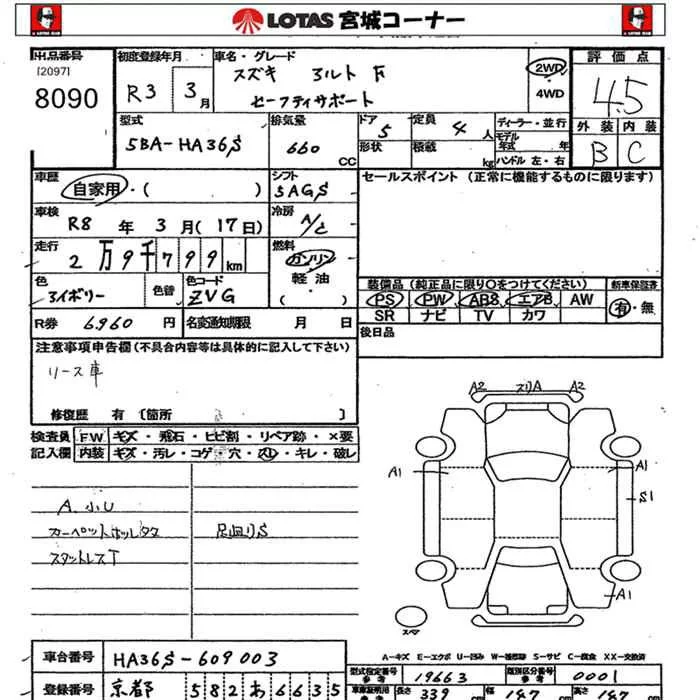 LOTAS 宮城コーナー
出品番号 初度登録年月 車名・グレード 評価点
[2097]
8090
R3 3月
スズキ アルト F
セーフティサポート
2WD
4WD
4.5
外装 内装
B C
型式 排気量 ドア 定員 ディーラー・並行
5BA-HA36S 660 CC 5 4人
モデル年式 年
形状 積載 kg ハンドル 左・右
車歴 シフト セールスポイント(正常に機能するものに限ります)
自家用・( ) 5AGS
車検 R8年 3月(17日) 冷房 A/C
走行 2万9千799km 燃料 ガソリン
軽油
( )
色 色替 色コード
アイボリー ZVG
装備品(純正品に限り○をつけてください) 新車保証書
PS PW ABS エアB AW 有・無
SR ナビ TV カワ
R券 6,960円 名変通知期限 月 日
後日品
注意事項申告欄(不具合内容等は具体的に記入して下さい)
リース車
修復歴 有〔箇所 〕
検査員 FW キズ・飛石・ヒビ割・リペア跡・×要
記入欄 内装 キズ・汚レ・コゲ・穴・スレ・キレ・破レ
A2 スリA A2
A1 A1
S1
A1
スペア
A.小U
カーペットホツレタタ 足回りS
スタットレスT
A-キズ E-エクボ U-凹み W-補修跡 S-サビ C-腐食 XX-交換済
車台番号 HA36S-609003
型式指定番号 参考 19663 類別区分番号 参考 0001
登録番号 京都 582 あ 6635
車庫証明用 参考 長さ 339 cm 幅 147 cm 高さ 147 cm